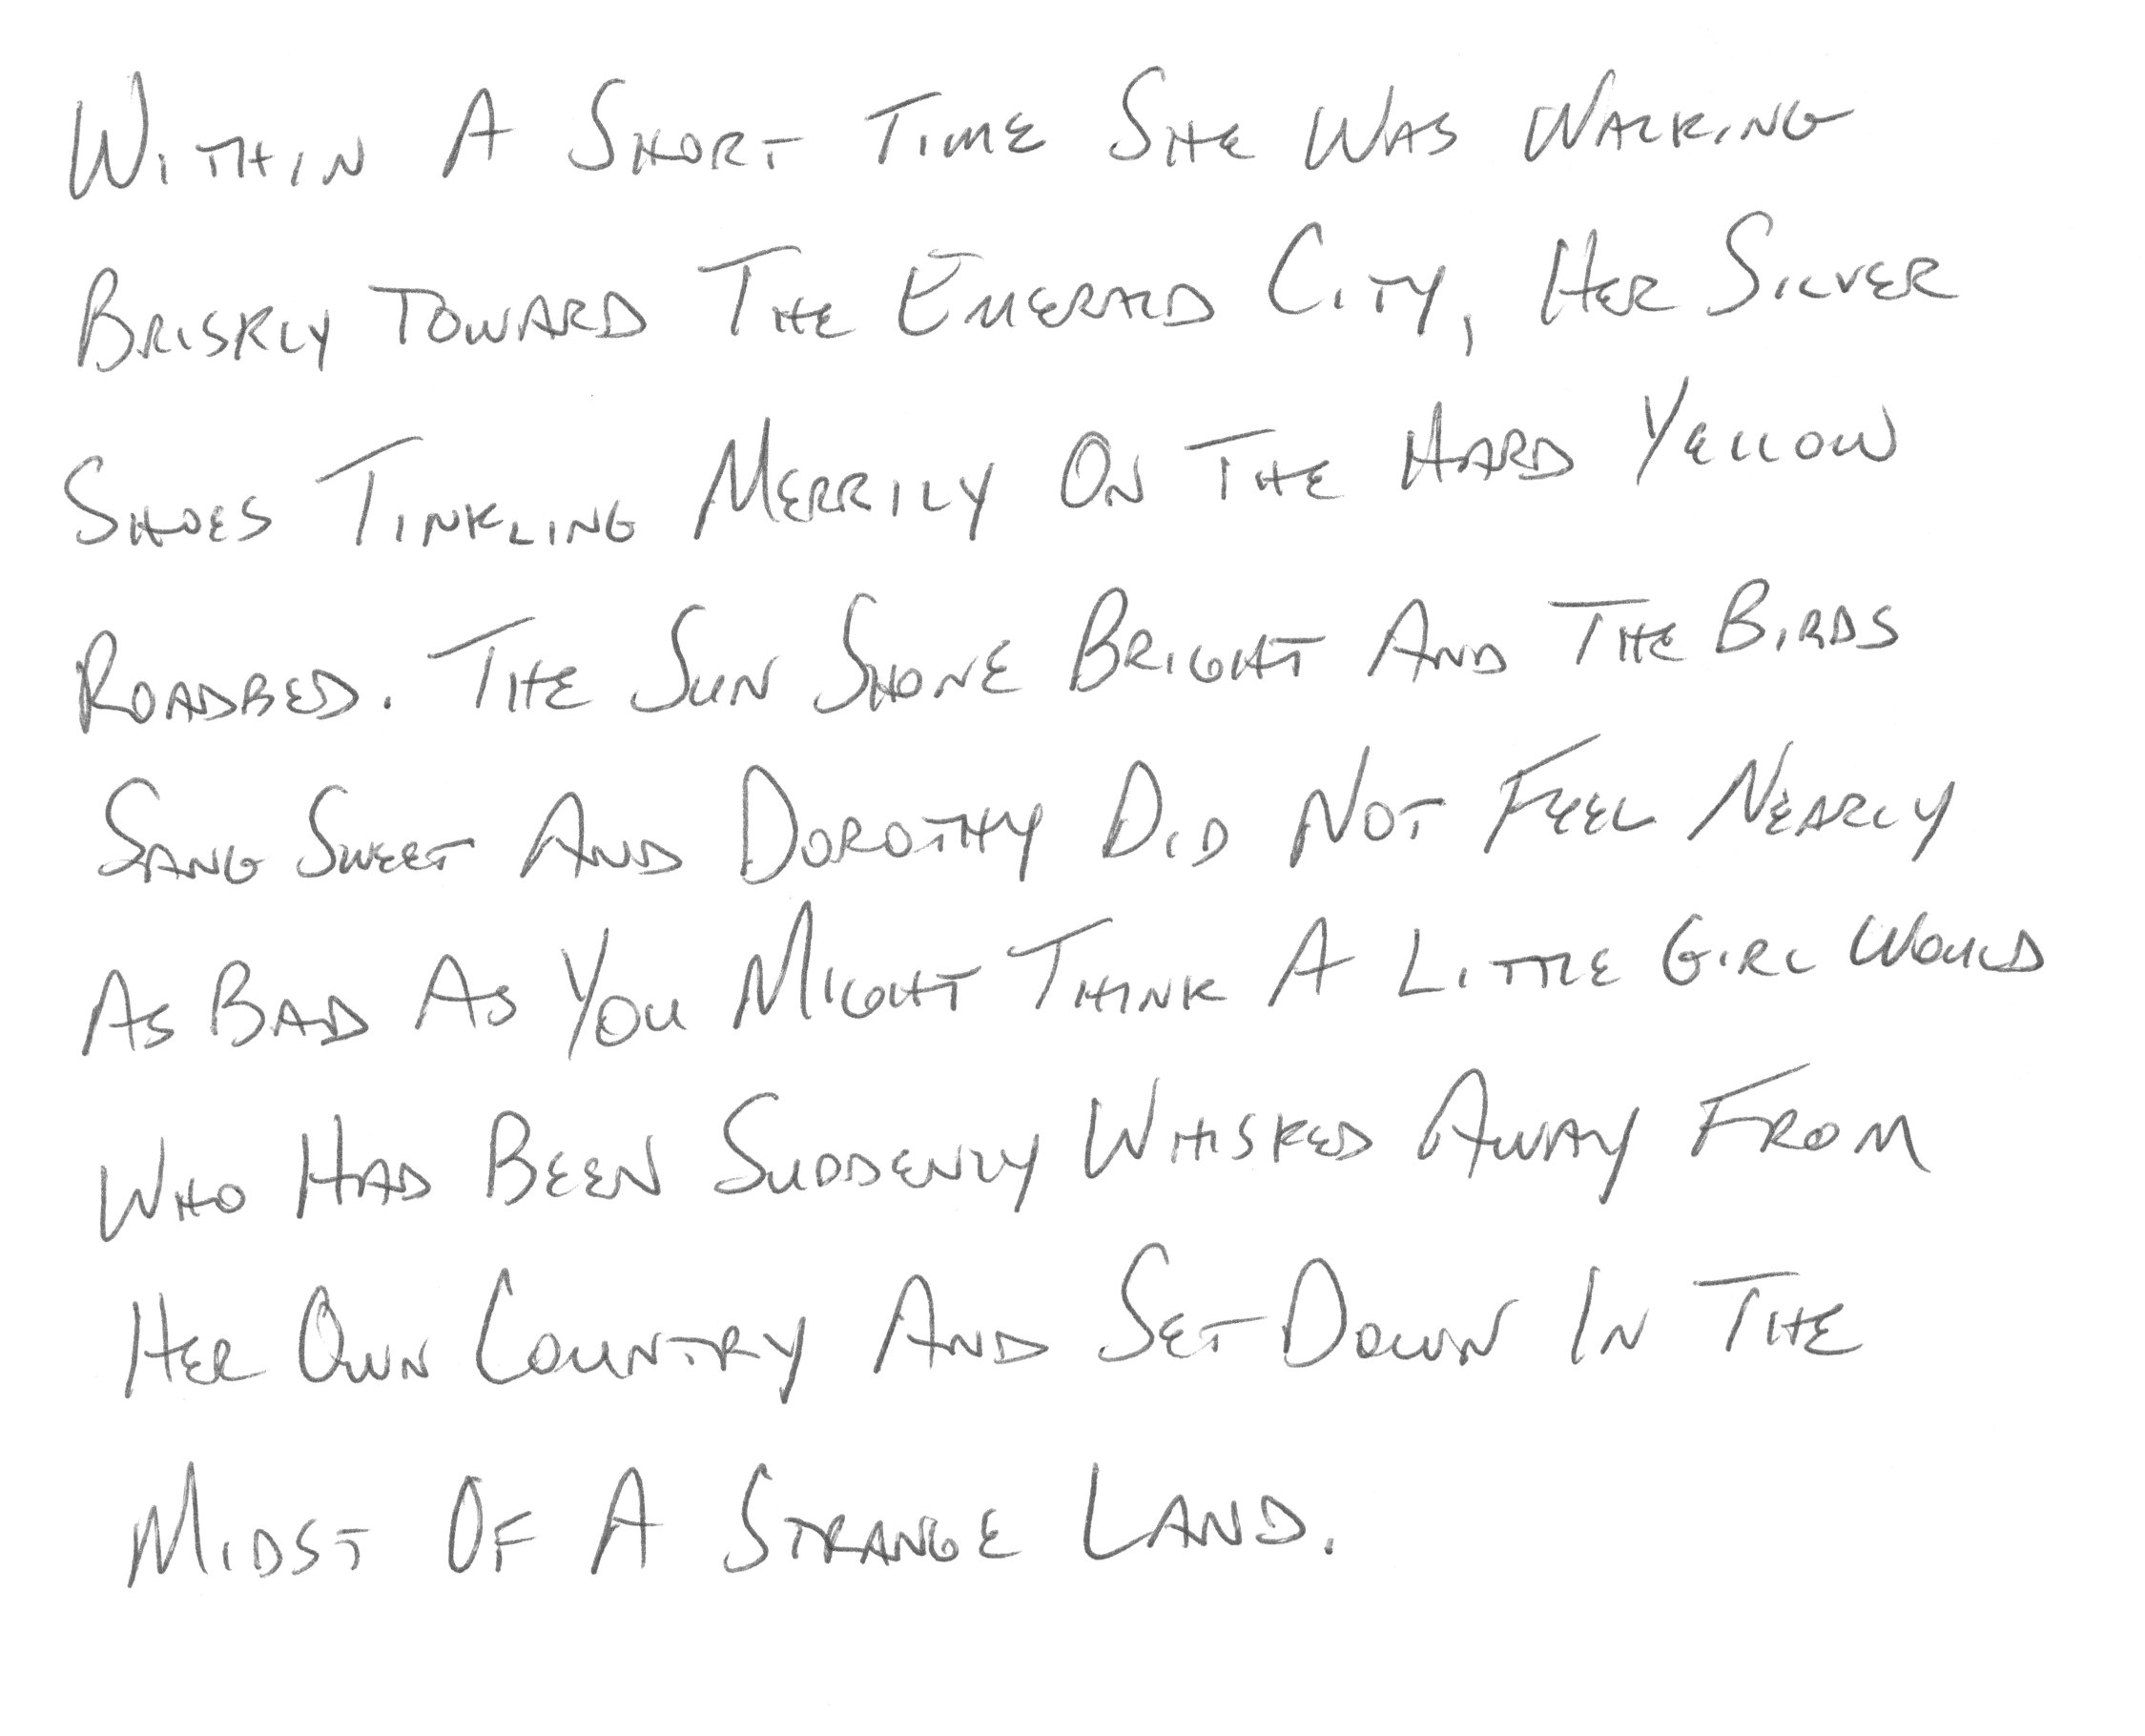 Within A Short Time She Was Walking
Briskly Toward The Emerald City, Her Silver
Shoes Tinkling Merrily On The Hard Yellow
Roadbed. The Sun Shone Bright And The Birds
Sang Sweet And Dorothy Did Not Feel Nearly
As Bad As You Might Think A Little Girl Would
Who Had Been Suddenly Whisked Away From
Her Own Country And Set Down In The
Midst Of A Strange Land.